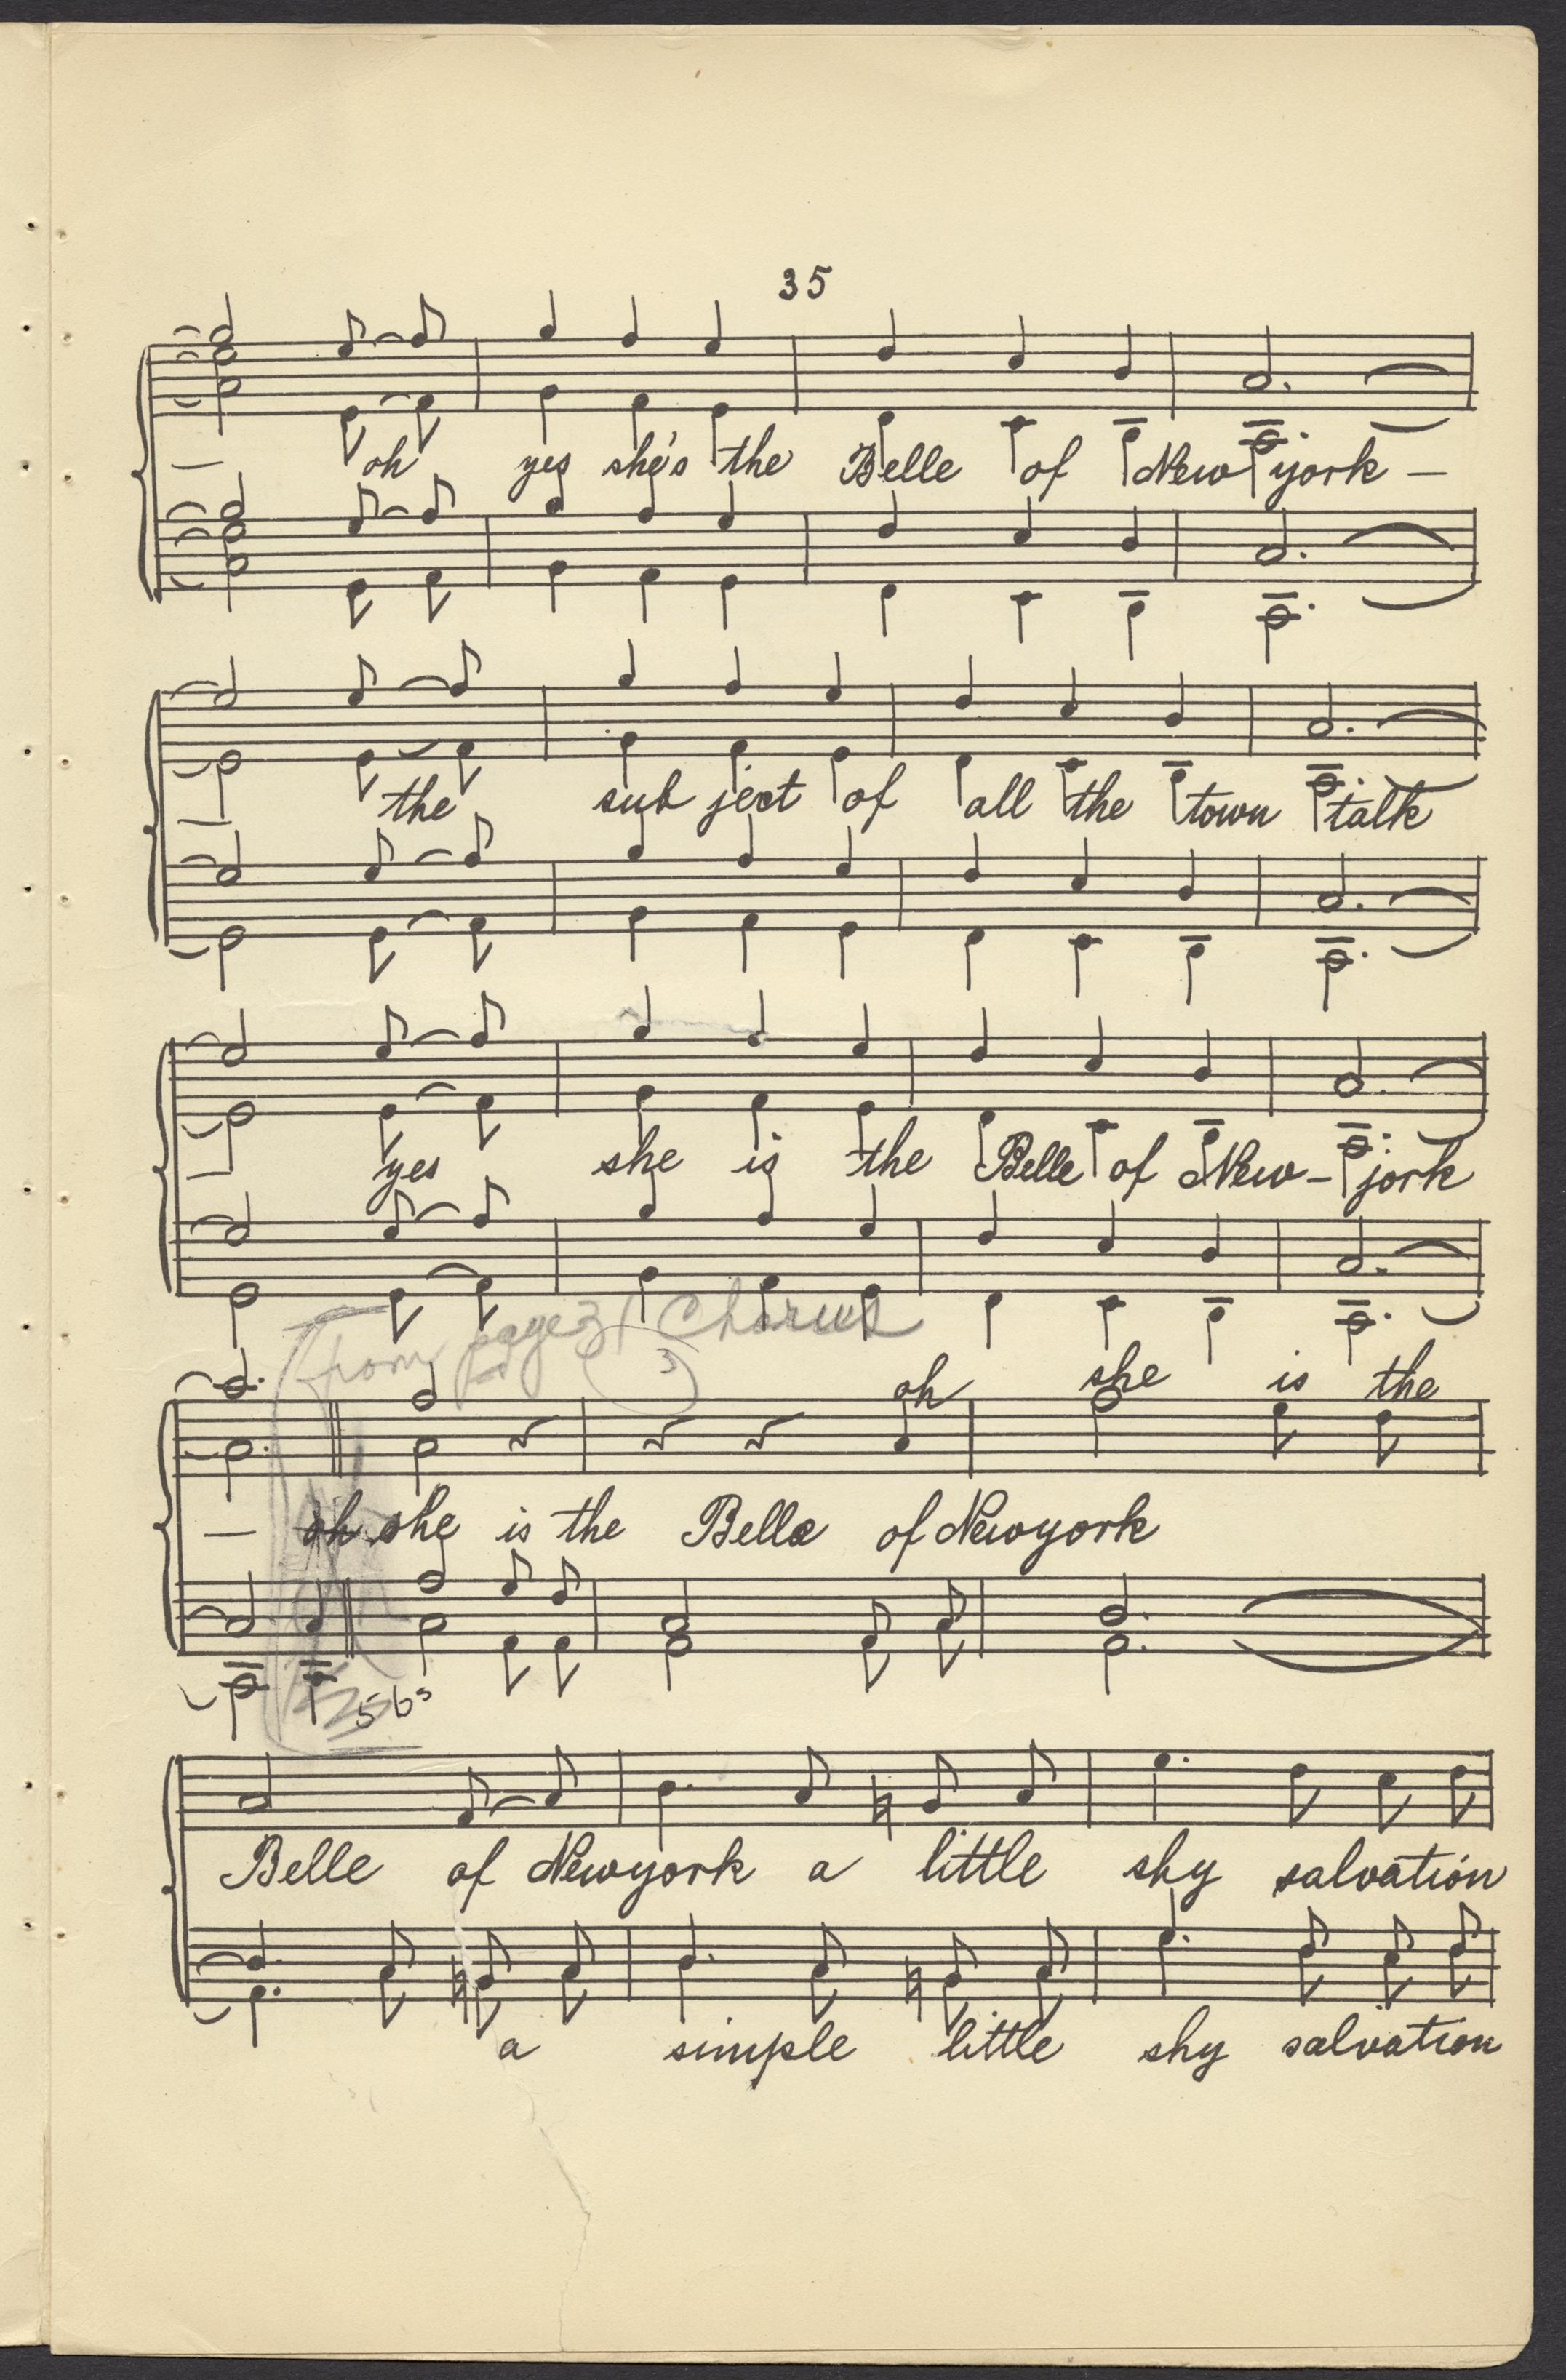 35
— oh yes she's the Belle of New york —
— the sub ject of all the town talk
— yes she is the Belle of New - jork
from page 31 Chorus
3
oh she is the
— oh she is the Belle of Newyork
56s
Belle of Newyork a little shy salvation
a simple little shy salvation